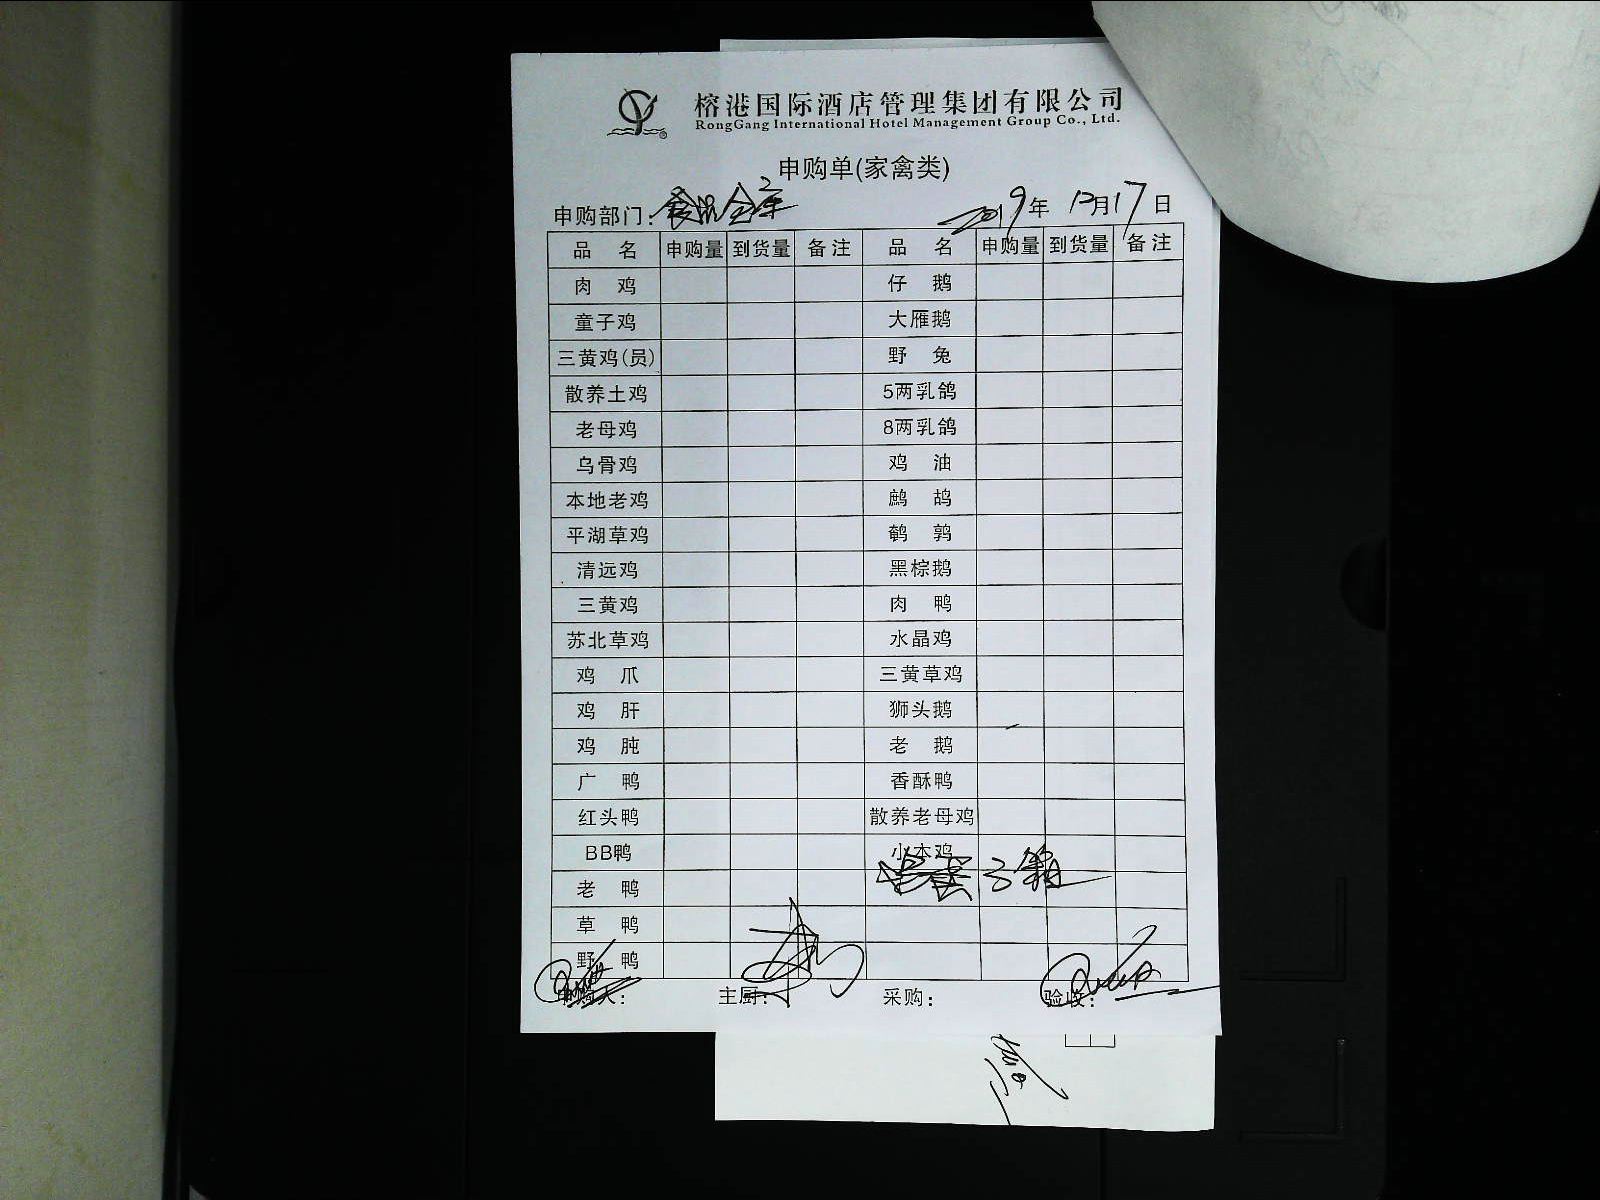 榕港国际酒店管理集团有限公司
RongGang International Hotel Management Group Co., Ltd.
申购单(家禽类)
申购部门：食品仓库 2019年12月17日
品 名 申购量 到货量 备注 品 名 申购量 到货量 备注
肉 鸡 仔 鹅
童子鸡 大雁鹅
三黄鸡(员) 野 兔
散养土鸡 5两乳鸽
老母鸡 8两乳鸽
乌骨鸡 鸡 油
本地老鸡 鹧 鸪
平湖草鸡 鹌 鹑
清远鸡 黑棕鹅
三黄鸡 肉 鸭
苏北草鸡 水晶鸡
鸡 爪 三黄草鸡
鸡 肝 狮头鹅
鸡 肫 老 鹅
广 鸭 香酥鸭
红头鸭 散养老母鸡
BB鸭 小本鸡
老 鸭 3箱
草 鸭
野 鸭
申购人： 主厨： 采购： 验收：